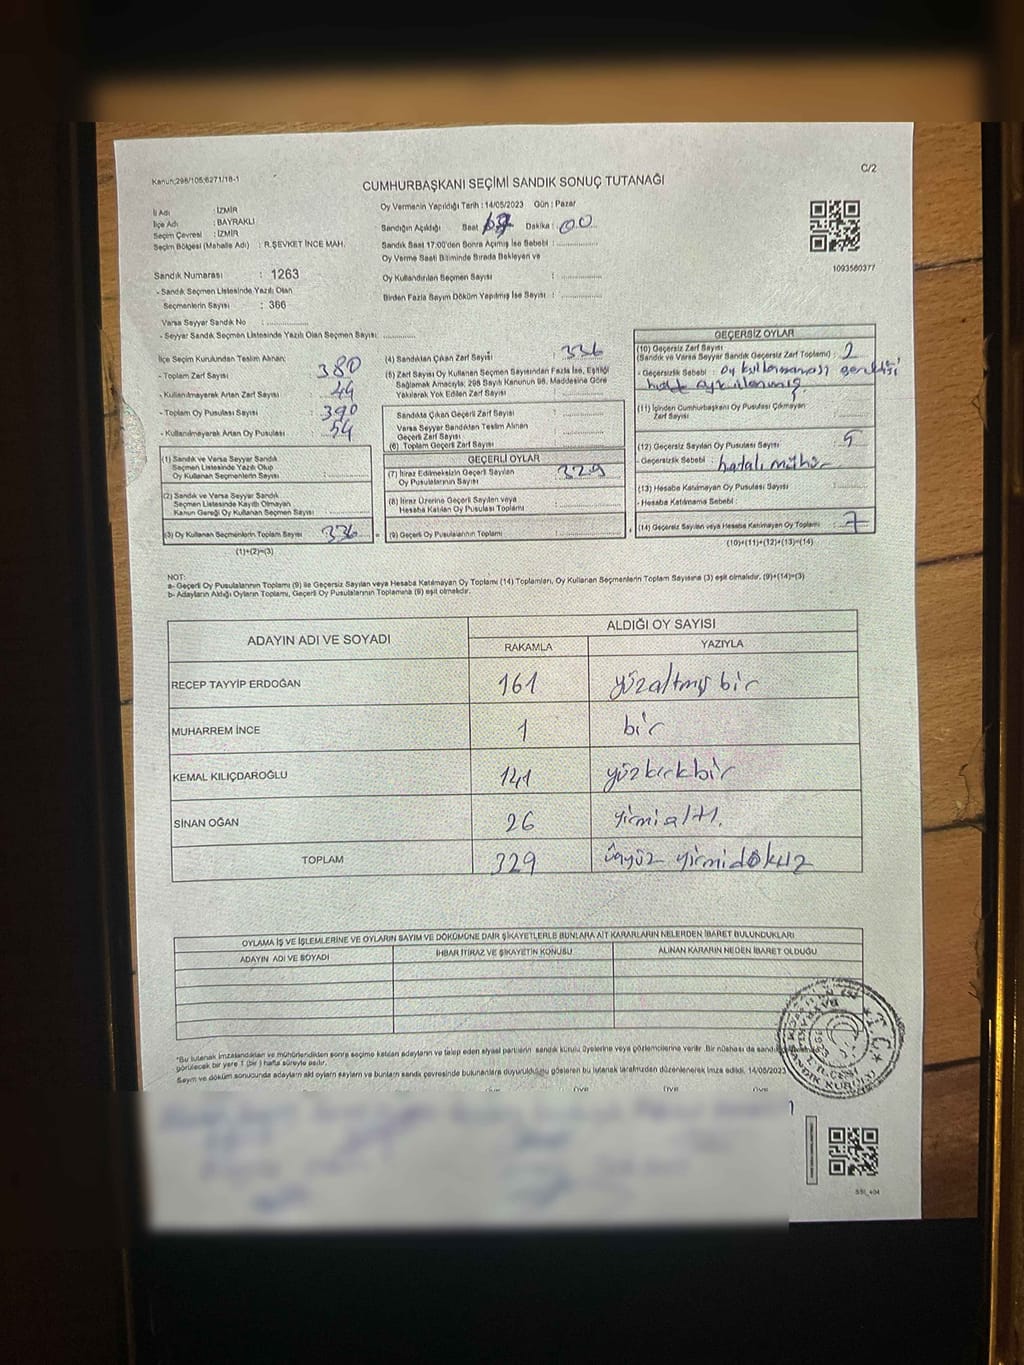 Kanun:298/105;6271/18-1
C/2
CUMHURBAŞKANI SEÇİMİ SANDIK SONUÇ TUTANAĞI
İl Adı : İZMİR
İlçe Adı : BAYRAKLI
Seçim Çevresi : İZMİR
Seçim Bölgesi (Mahalle Adı) : R.ŞEVKET İNCE MAH.
Sandık Numarası : 1263
- Sandık Seçmen Listesinde Yazılı Olan
Seçmenlerin Sayısı : 366
Varsa Seyyar Sandık No :
- Seyyar Sandık Seçmen Listesinde Yazılı Olan Seçmen Sayısı:
Oy Vermenin Yapıldığı Tarih : 14/05/2023 Gün : Pazar
Sandığın Açıldığı Saat Dakika : 00
Sandık Saat 17:00'den Sonra Açılmış İse Sebebi :
Oy Verme Saati Bitiminde Sırada Bekleyen ve
Oy Kullandırılan Seçmen Sayısı :
Birden Fazla Sayım Döküm Yapılmış İse Sayısı :
1093560377
İlçe Seçim Kurulundan Teslim Alınan:
- Toplam Zarf Sayısı : 380
- Kullanılmayarak Artan Zarf Sayısı : 44
- Toplam Oy Pusulası Sayısı : 390
- Kullanılmayarak Artan Oy Pusulası : 54
(1) Sandık ve Varsa Seyyar Sandık
Seçmen Listesinde Yazılı Olup
Oy Kullanan Seçmenlerin Sayısı :
(2) Sandık ve Varsa Seyyar Sandık
Seçmen Listesinde Kayıtlı Olmayan
Kanun Gereği Oy Kullanan Seçmen Sayısı :
(3) Oy Kullanan Seçmenlerin Toplam Sayısı : 336
(1)+(2)=(3)
(4) Sandıktan Çıkan Zarf Sayısı : 336
(5) Zarf Sayısı Oy Kullanan Seçmen Sayısından Fazla İse, Eşitliği
Sağlamak Amacıyla; 298 Sayılı Kanunun 98. Maddesine Göre
Yakılarak Yok Edilen Zarf Sayısı :
Sandıkta Çıkan Geçerli Zarf Sayısı :
Varsa Seyyar Sandıktan Teslim Alınan
Geçerli Zarf Sayısı :
(6) Toplam Geçerli Zarf Sayısı :
GEÇERLİ OYLAR
(7) İtiraz Edilmeksizin Geçerli Sayılan
Oy Pusulalarının Sayısı : 329
(8) İtiraz Üzerine Geçerli Sayılan veya
Hesaba Katılan Oy Pusulası Toplamı :
(9) Geçerli Oy Pusulalarının Toplamı :
GEÇERSİZ OYLAR
(10) Geçersiz Zarf Sayısı
(Sandık ve Varsa Seyyar Sandık Geçersiz Zarf Toplamı) : 2
- Geçersizlik Sebebi : oy kullanması gerektiği
(11) İçinden Cumhurbaşkanı Oy Pusulası Çıkmayan
Zarf Sayısı :
(12) Geçersiz Sayılan Oy Pusulası Sayısı : 5
- Geçersizlik Sebebi : hatalı mühür
(13) Hesaba Katılmayan Oy Pusulası Sayısı :
- Hesaba Katılmama Sebebi :
(14) Geçersiz Sayılan veya Hesaba Katılmayan Oy Toplamı : 7
(10)+(11)+(12)+(13)=(14)
NOT:
a- Geçerli Oy Pusulalarının Toplamı (9) ile Geçersiz Sayılan veya Hesaba Katılmayan Oy Toplamı (14) Toplamları, Oy Kullanan Seçmenlerin Toplam Sayısına (3) eşit olmalıdır. (9)+(14)=(3)
b- Adayların Aldığı Oyların Toplamı, Geçerli Oy Pusulalarının Toplamına (9) eşit olmalıdır.
ADAYIN ADI VE SOYADI
ALDIĞI OY SAYISI
RAKAMLA YAZIYLA
RECEP TAYYİP ERDOĞAN 161 yüzaltmış bir
MUHARREM İNCE 1 bir
KEMAL KILIÇDAROĞLU 141 yüzkırkbir
SİNAN OĞAN 26 yirmialtı.
TOPLAM 329 üçyüz yirmidokuz
OYLAMA İŞ VE İŞLEMLERİNE VE OYLARIN SAYIM VE DÖKÜMÜNE DAİR ŞİKAYETLERLE BUNLARA AİT KARARLARIN NELERDEN İBARET BULUNDUKLARI
ADAYIN ADI VE SOYADI İHBAR İTİRAZ VE ŞİKAYETİN KONUSU ALINAN KARARIN NEDEN İBARET OLDUĞU
*Bu tutanak imzalandıktan ve mühürlendikten sonra seçime katılan adayların ve talep eden siyasi partilerin sandık kurulu üyelerine veya gözlemcilerine verilir. Bir nüshası da
görülecek bir yere 1 (bir) hafta süreyle asılır.
Sayım ve döküm sonucunda adayların aldığı oyların sayılarını ve bunların sandık çevresinde bulunanlara duyurulduğunu gösteren bu tutanak tarafımızdan düzenlenerek imza edildi. 14/05/2023
T.C.